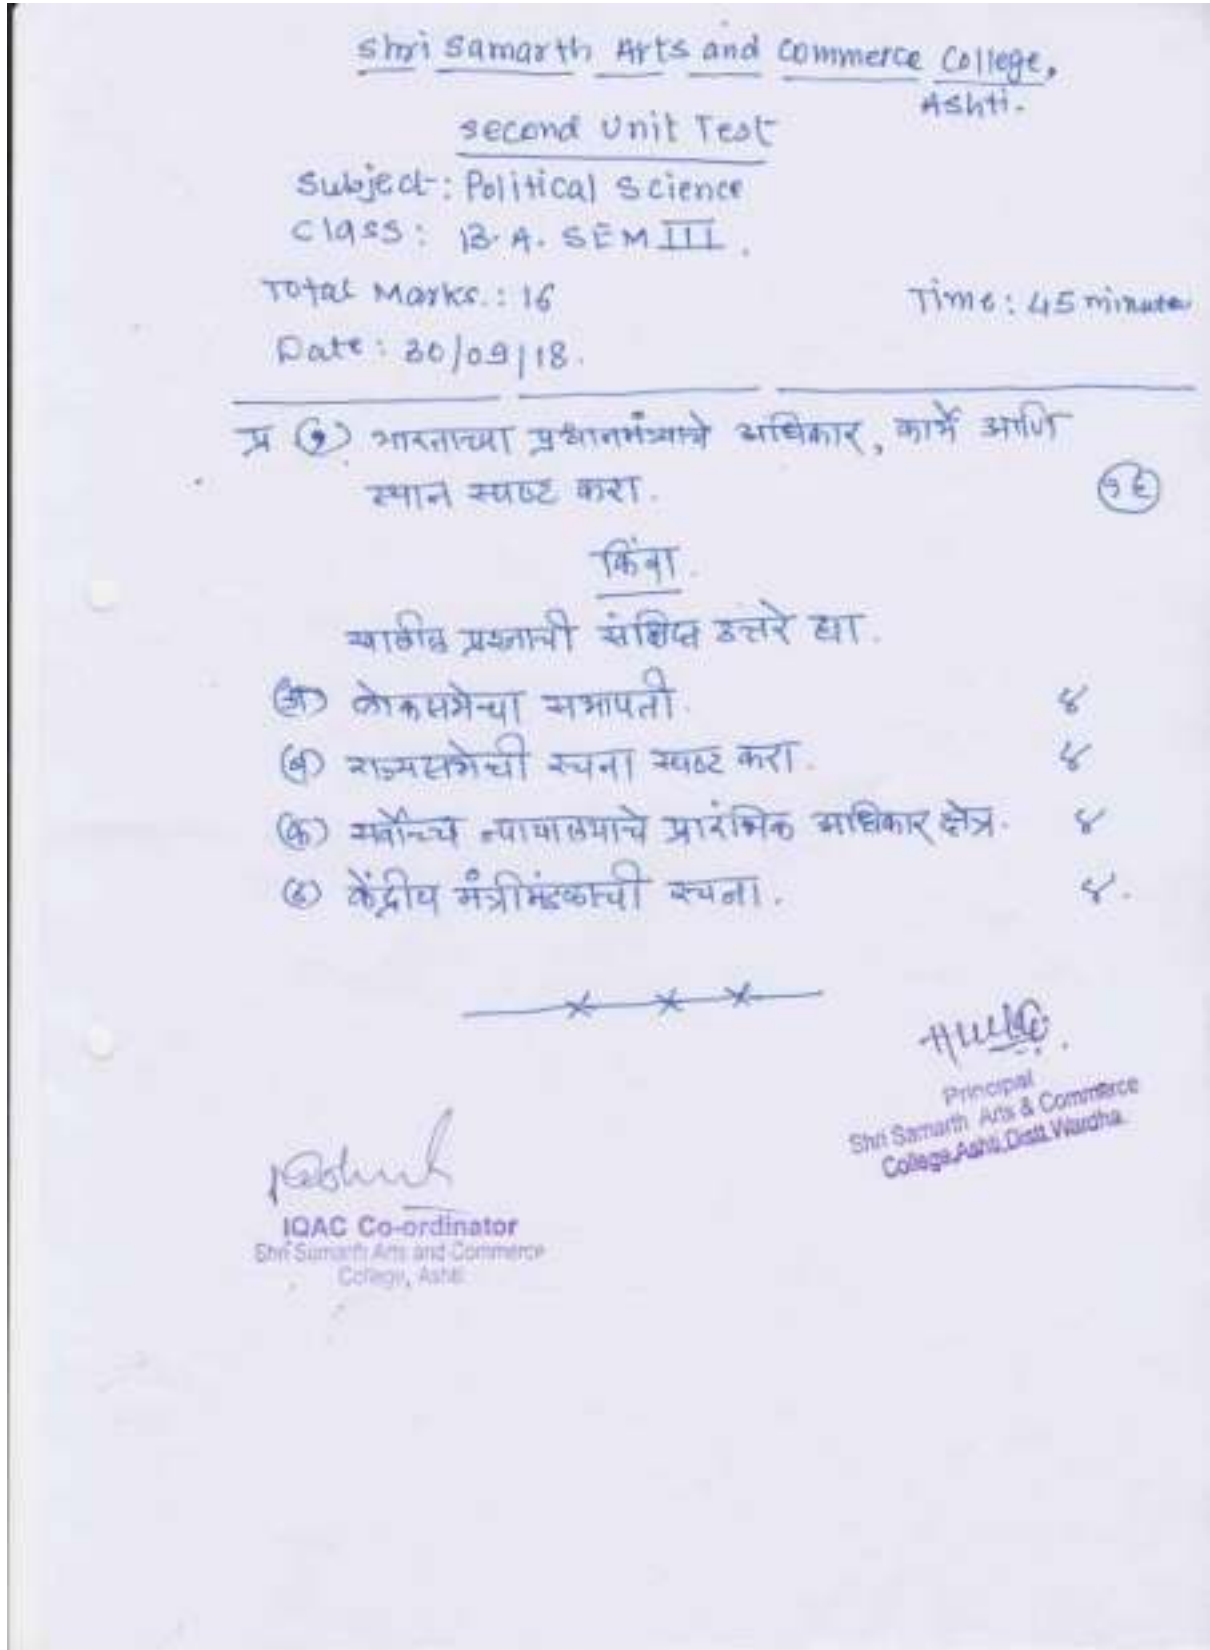 Shri Samarth Arts and Commerce College,
Ashti.
Second Unit Test
Subject: Political Science
Class: B.A. SEM III.
Total Marks.: 16 Time: 45 minute
Date: 30/09/18.
प्र (१) भारताच्या प्रधानमंत्र्याचे अधिकार, कार्ये आणि
स्थान स्पष्ट करा. (१६)
किंवा.
खालील प्रश्नाची संक्षिप्त उत्तरे द्या.
(अ) लोकसभेचा सभापती. ४
(ब) राज्यसभेची रचना स्पष्ट करा. ४
(क) सर्वोच्च न्यायालयाचे प्रारंभिक अधिकार क्षेत्र. ४
(ड) केंद्रीय मंत्रीमंडळाची रचना. ४.
Principal
Shri Samarth Arts & Commerce
College, Ashti, Distt. Wardha.
IQAC Co-ordinator
Shri Samarth Arts and Commerce
College, Ashti